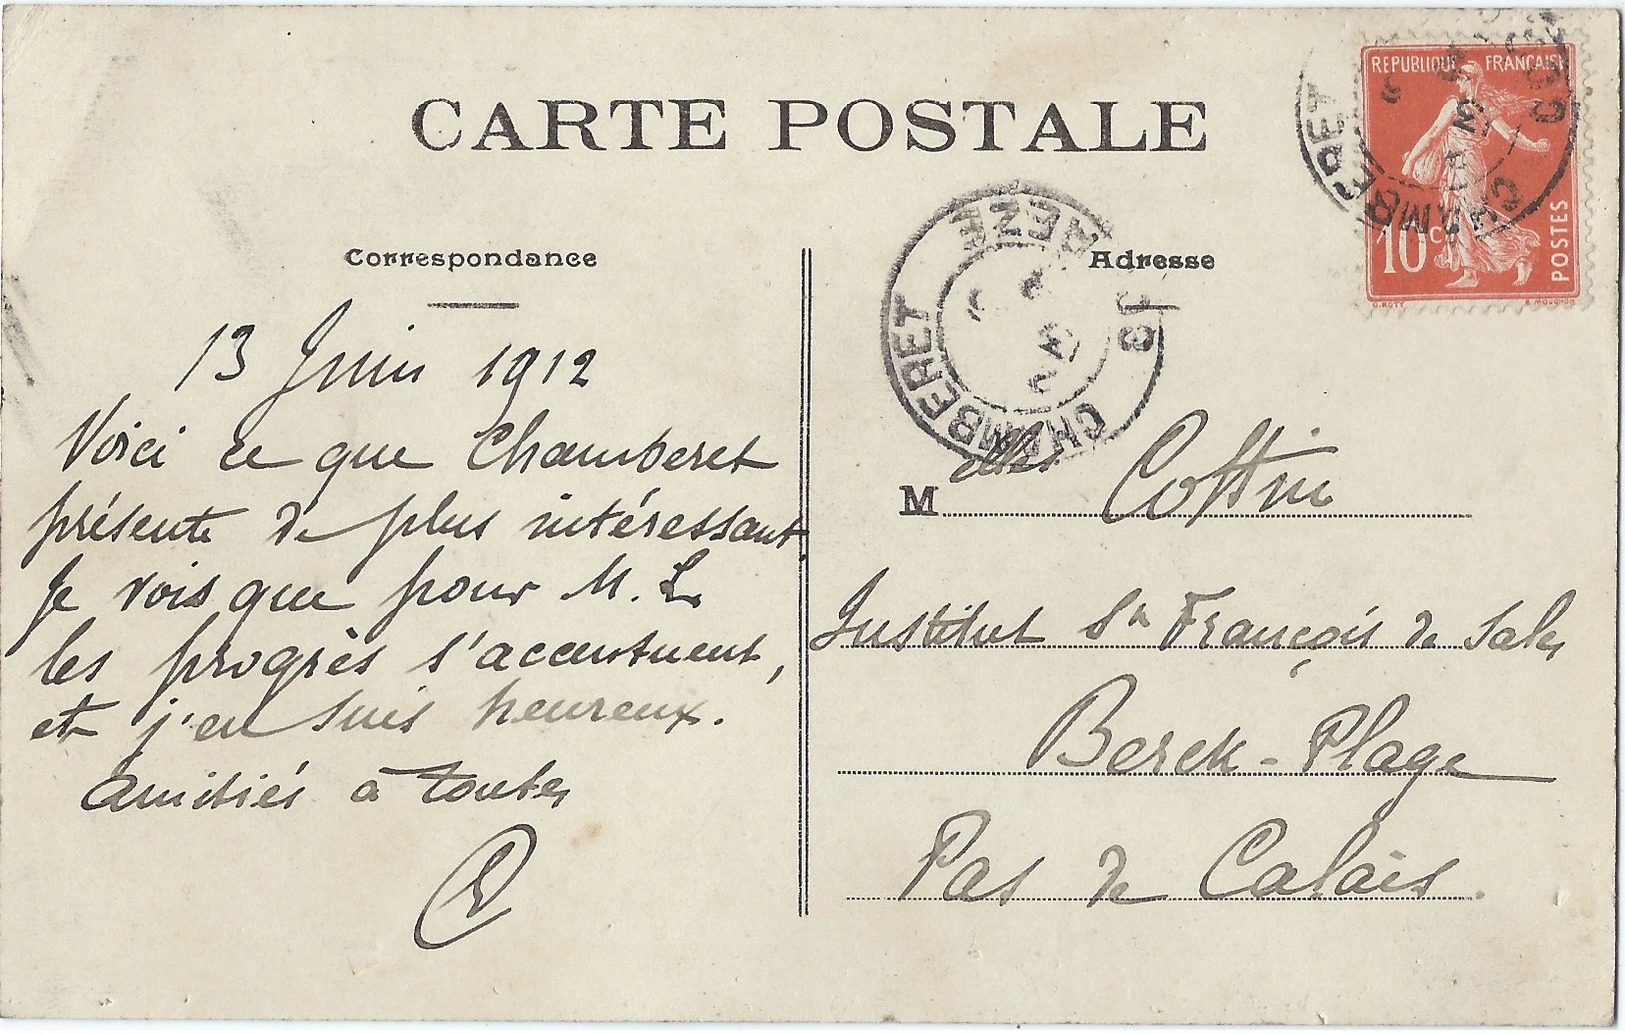 CARTE POSTALE
REPUBLIQUE FRANÇAISE
10 c
POSTES
O. ROTY
E. MOUCHON
CHAMBERET
CORRÈZE
Correspondance
13 Juin 1912
Voici ce que Chamberet
présente de plus intéressant.
Je vois que pour M. L.
les progrès s'accentuent,
et j'en suis heureux.
Amitiés à toutes
Adresse
CHAMBERET
CORRÈZE
M elles Cottin
Institut St François de Sales
Berck-Plage
Pas de Calais.